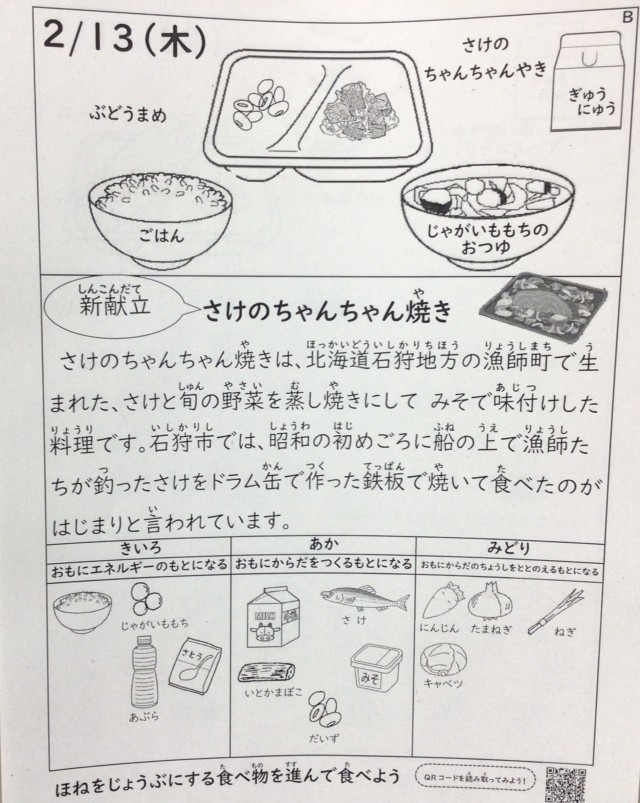 B
2/13(木)
さけの
ちゃんちゃんやき
ぎゅう
にゅう
ぶどうまめ
ごはん
じゃがいももちの
おつゆ
しんこんだて
新献立
や
さけのちゃんちゃん焼き
や ほっかいどういしかりちほう りょうしまち う
さけのちゃんちゃん焼きは、北海道石狩地方の漁師町で生
しゅん やさい む や あじつ
まれた、さけと旬の野菜を蒸し焼きにして みそで味付けした
りょうり いしかりし しょうわ はじ ふね うえ りょうし
料理です。石狩市では、昭和の初めごろに船の上で漁師た
つ かん つく てっぱん や た
ちが釣ったさけをドラム缶で作った鉄板で焼いて食べたのが
い
はじまりと言われています。
きいろ
おもにエネルギーのもとになる
あか
おもにからだをつくるもとになる
みどり
おもにからだのちょうしをととのえるもとになる
じゃがいももち
さとう
あぶら
MILK
さけ
いとかまぼこ
みそ
だいず
にんじん
たまねぎ
ねぎ
キャベツ
た もの すす た
ほねをじょうぶにする食べ物を進んで食べよう
QRコードを読み取ってみよう!